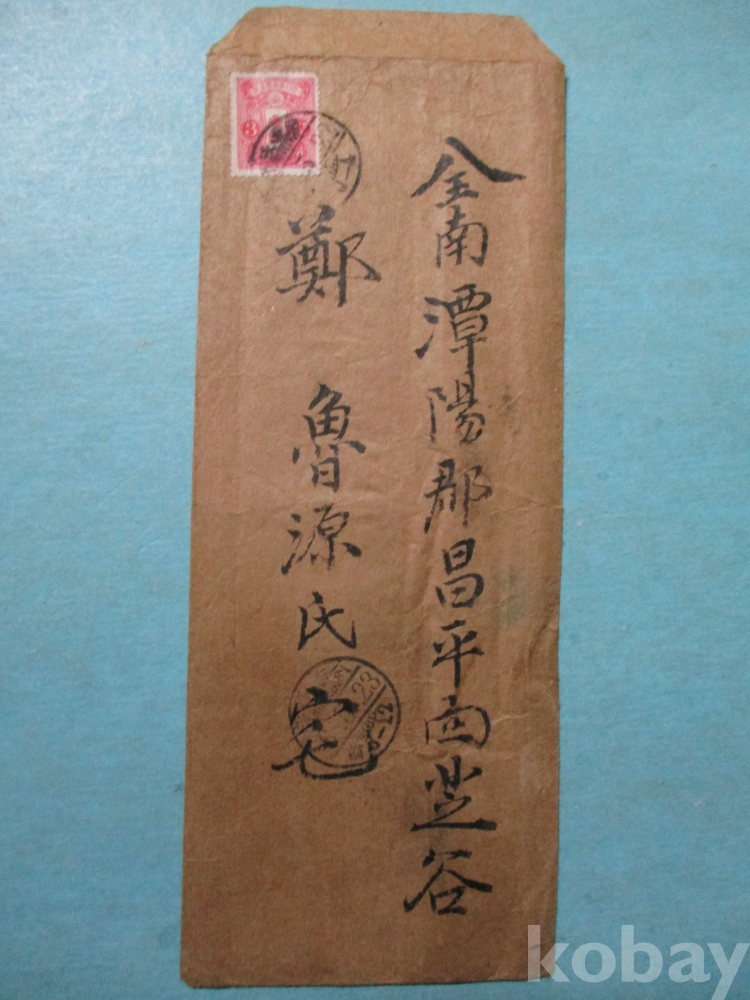 全南潭陽郡昌平面芝谷
鄭 魯源氏宅
3
23
kobay